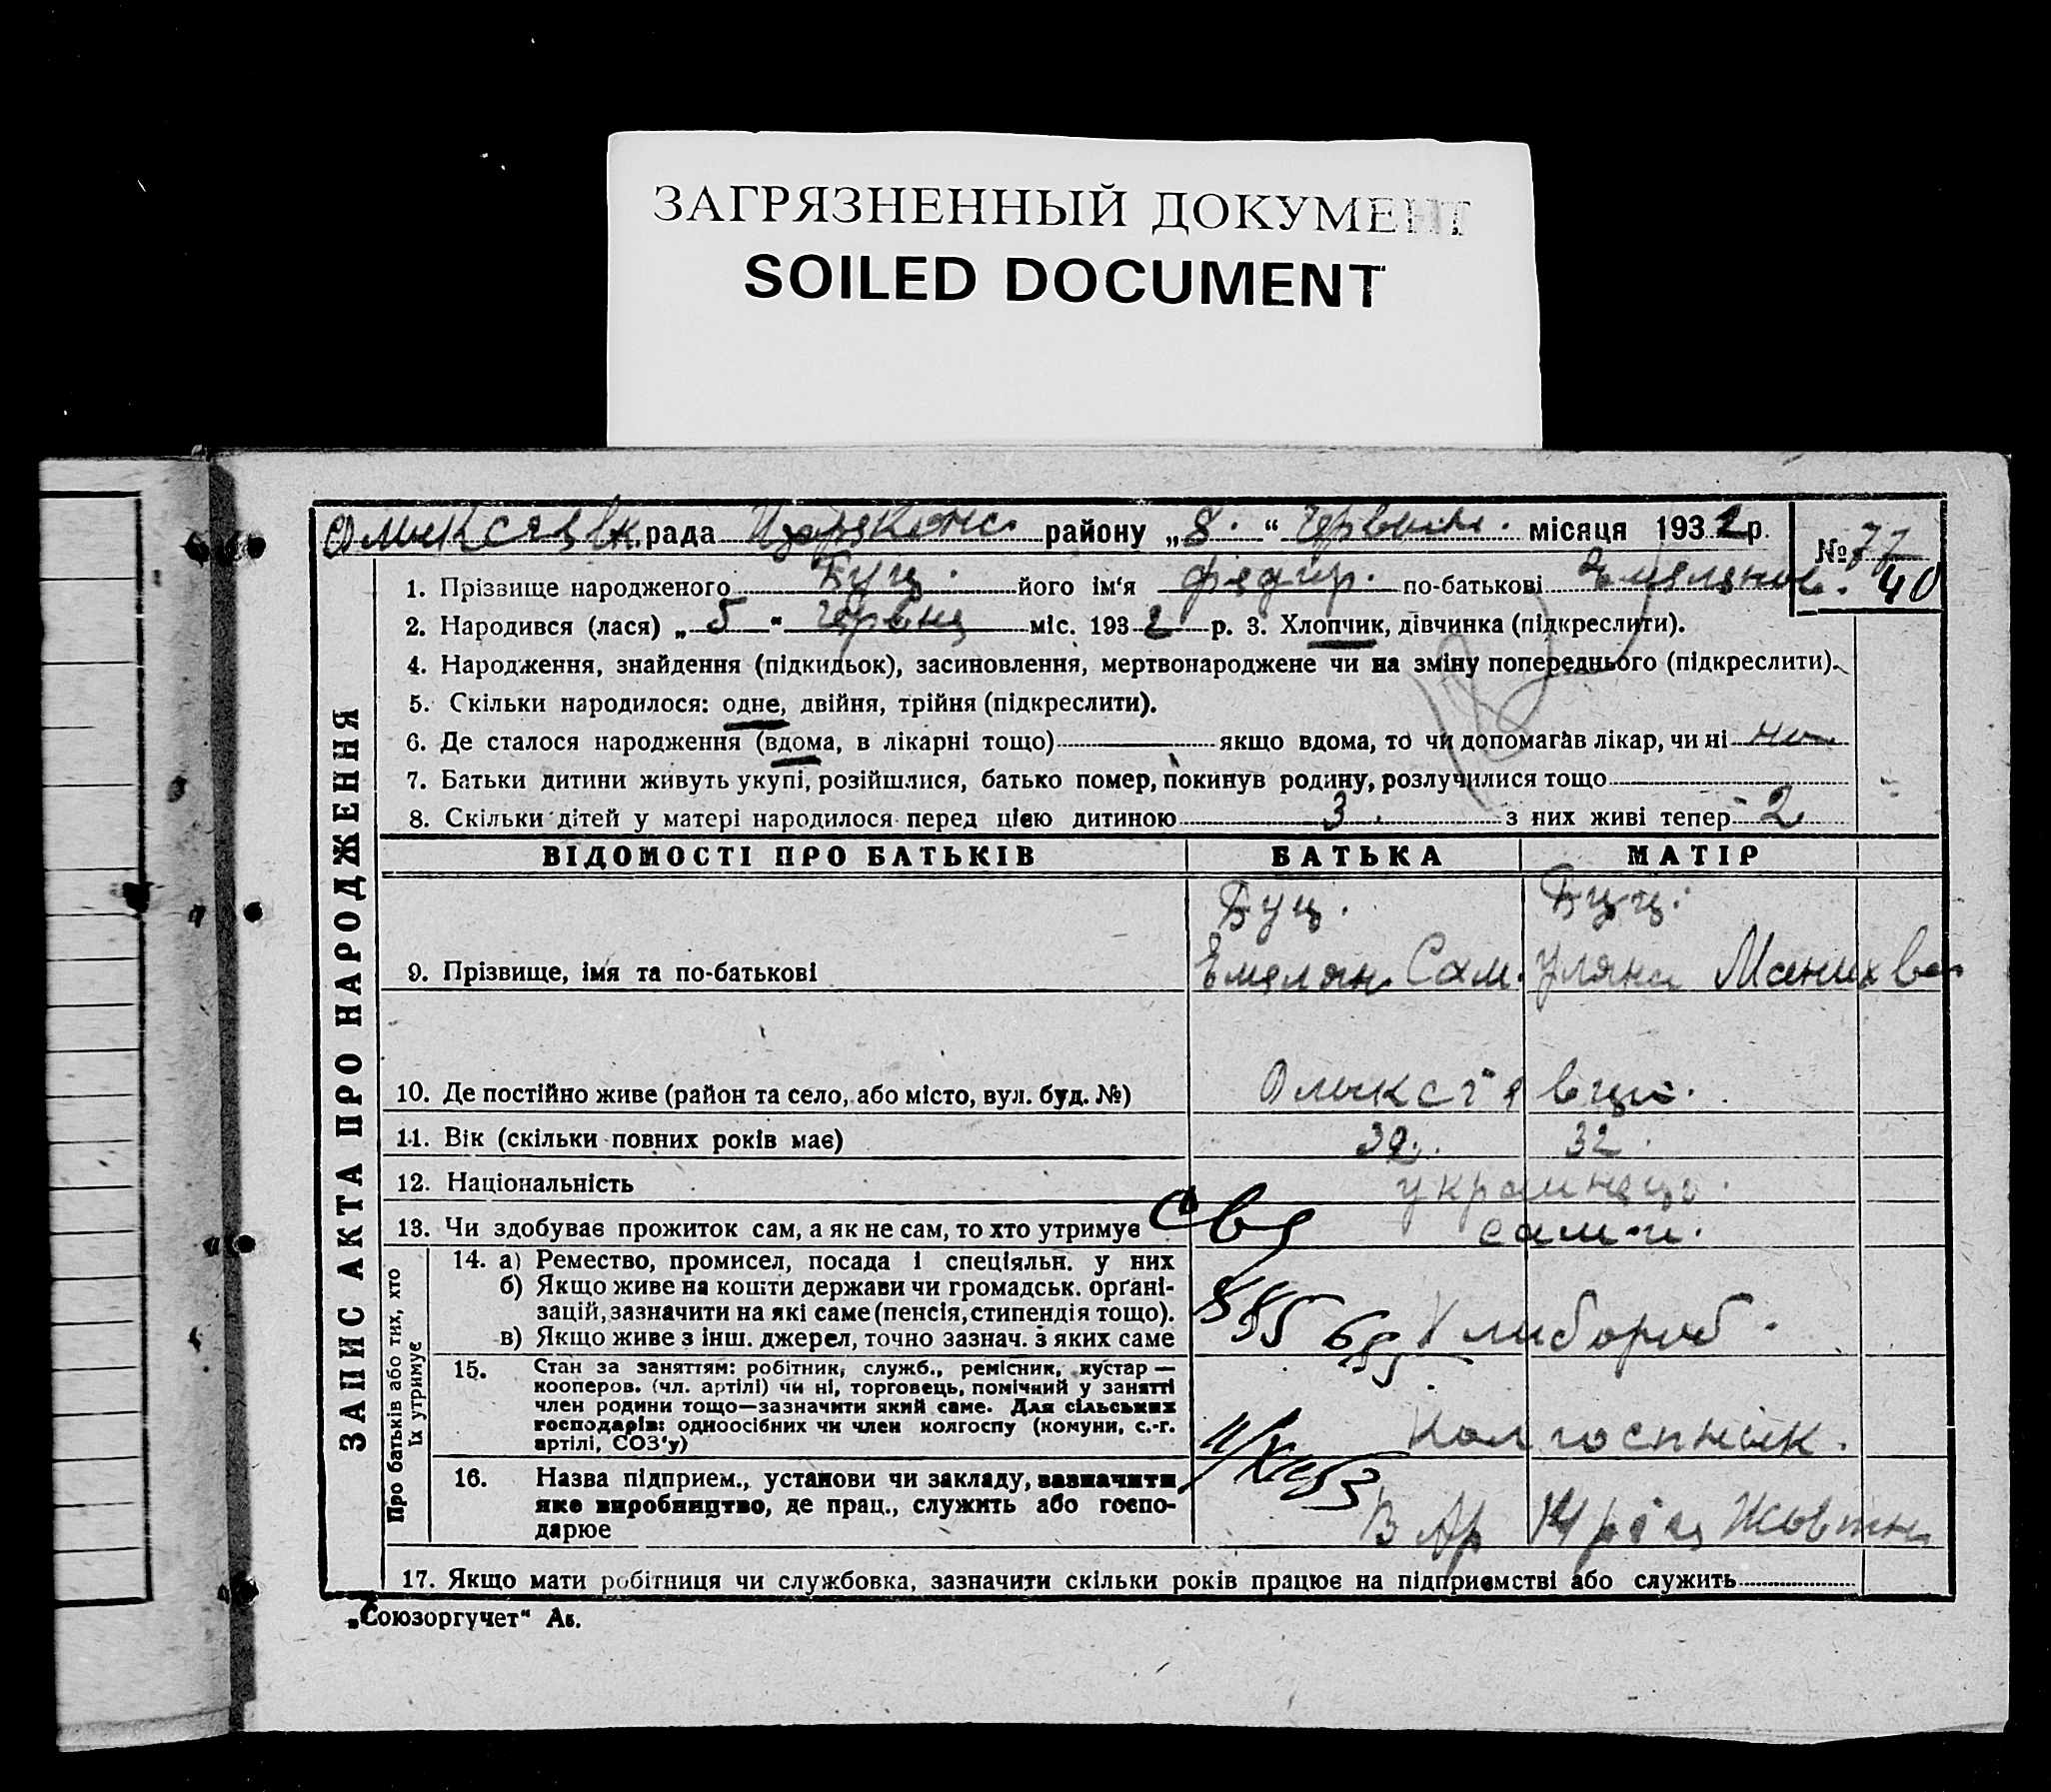 ЗАГРЯЗНЕННЫЙ ДОКУМЕНТ
SOILED DOCUMENT
рада району „8.“ місяця 1932 р.
№ 77
40
ЗАПИС АКТА ПРО НАРОДЖЕННЯ
1. Прізвище народженого Буц. його ім‘я Федір. по-батькові
2. Народився (лася) „5“ червня міс. 1932 р. 3. Хлопчик, дівчинка (підкреслити).
4. Народження, знайдення (підкидьок), засиновлення, мертвонароджене чи на зміну попереднього (підкреслити).
5. Скільки народилося: одне, двійня, трійня (підкреслити).
6. Де сталося народження (вдома, в лікарні тощо) якщо вдома, то чи допомагав лікар, чи ні
7. Батьки дитини живуть укупі, розійшлися, батько помер, покинув родину, розлучилися тощо
8. Скільки дітей у матері народилося перед цією дитиною 3. з них живі тепер 2
ВІДОМОСТІ ПРО БАТЬКІВ БАТЬКА МАТІР
Буц. Буц.
9. Прізвище, імя та по-батькові Емелян Сам. Уляна
10. Де постійно живе (район та село, або місто, вул. буд. №)
11. Вік (скільки повних років має) 32
12. Національність українці.
13. Чи здобуває прожиток сам, а як не сам, то хто утримує сами.
Про батьків або тих, хто їх утримує
14. а) Ремество, промисел, посада і спеціяльн. у них
б) Якщо живе на кошти держави чи громадськ. орґані-
зацій, зазначити на які саме (пенсія, стипендія тощо).
в) Якщо живе з інш. джерел, точно зазнач. з яких саме Хлибороб.
15. Стан за заняттям: робітник, служб., ремісник, кустар —
кооперов. (чл. артілі) чи ні, торговець, помічний у занятті
член родини тощо—зазначити який саме. Для сільських
господарів: одноосібних чи член колгоспу (комуни, с.-г.
артілі, СОЗ‘у) Колгоспник.
16. Назва підприєм., установи чи закладу, зазначити
яке виробництво, де прац., служить або госпо-
дарює В Ар 14 річя Жовтня
17. Якщо мати робітниця чи службовка, зазначити скільки років працює на підприємстві або служить
„Союзоргучет“ Ав.